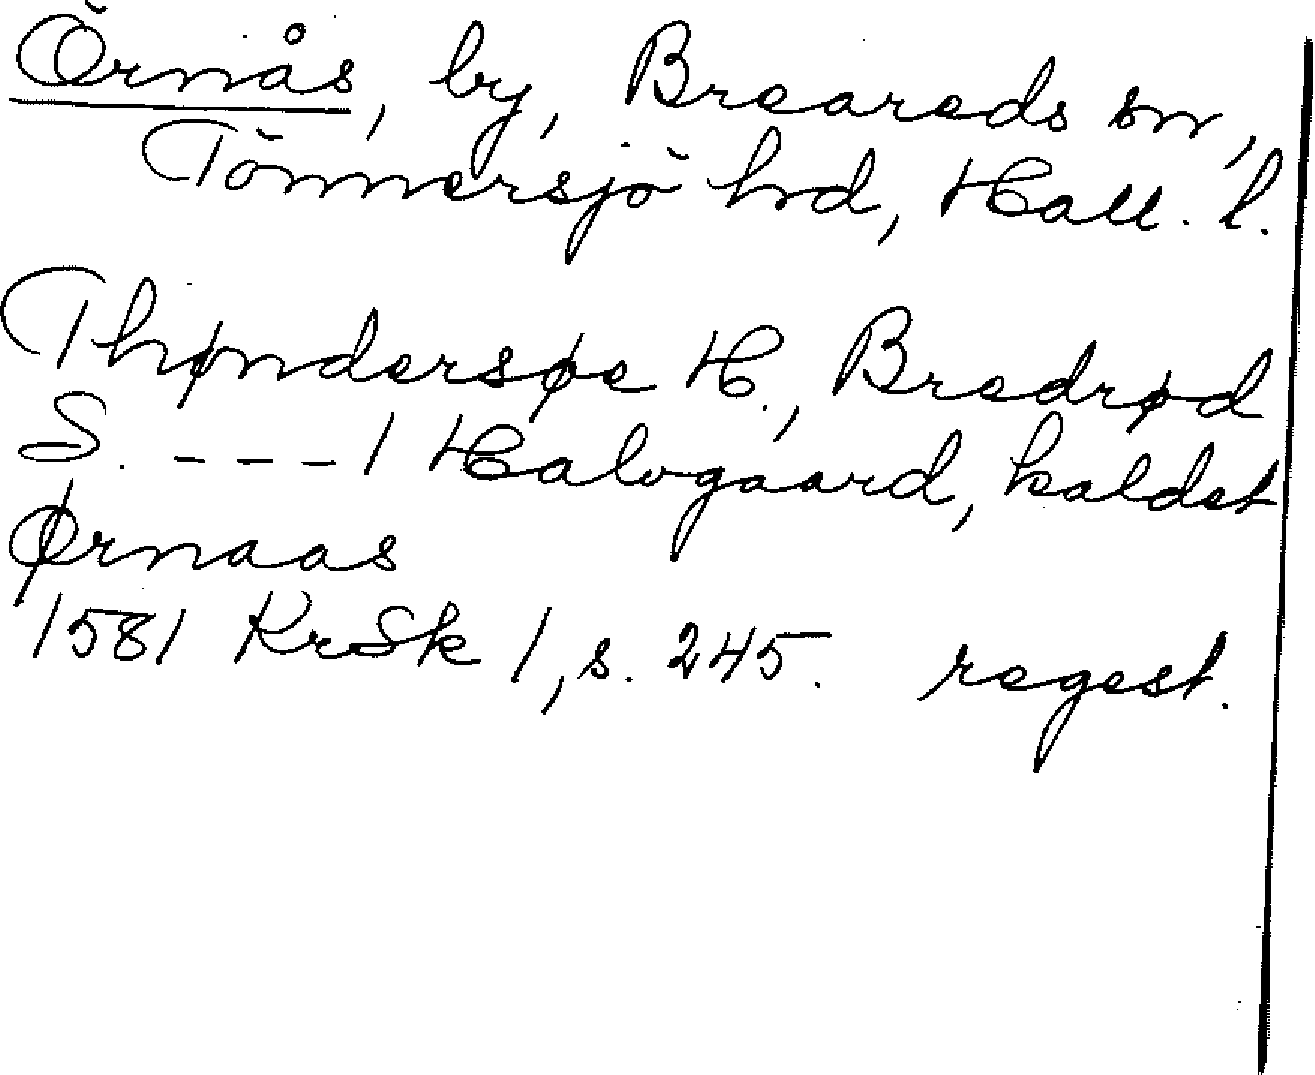 Örnås, by, Breareds sn,
Tönnersjö hrd, Hall. l.
Thøndersøe H., Bredrød
S. - - - 1 Halvgaard, kaldet
Ørnaas
1581 KrSk 1, s. 245. regest.